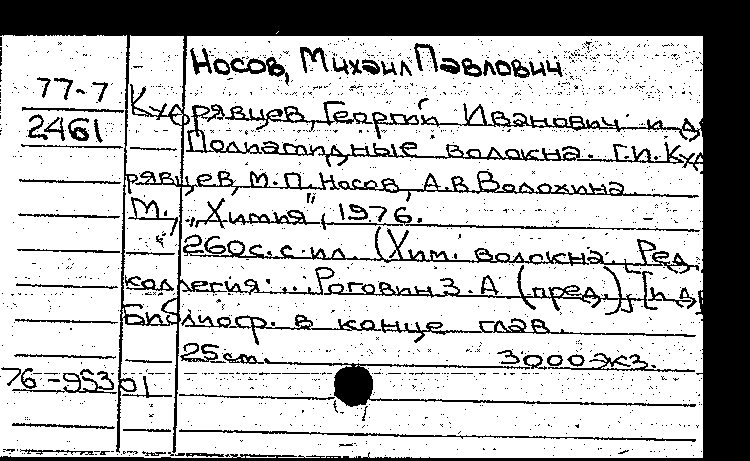 Носов, Михаил Павлович
77-7
2461
Кудрявцев, Георгий Иванович и др
Полиамидные волокна. Г.И. Куд
рявцев, М.П. Носов, А.В. Волохина.
М., „Химия", 1976.
260 с. с ил. (Хим. волокна. Ред.
коллегия: ... Роговин З.А (пред.), [и др
Библиогр. в конце глав.
25 см. 3000 экз.
76-95301